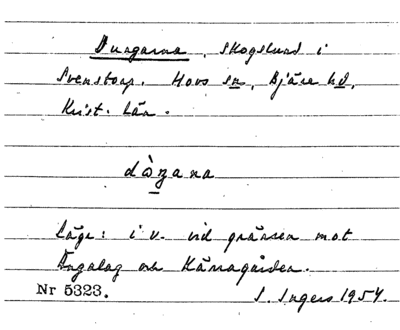 Dungarna, skogslund i
Svenstorp. Hovs sn, Bjäre hd,
Krist. län.
dòŋana
Läge: i v. vid gränsen mot
Ängalag och Kärragården.
Nr 5323. I. Ingers 1954.